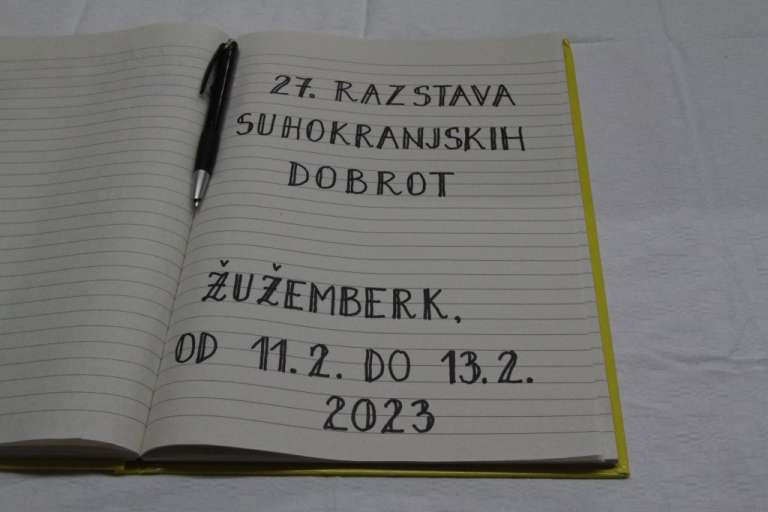 27. RAZSTAVA
SUHOKRANJSKIH
DOBROT
ŽUŽEMBERK,
OD 11.2. DO 13.2.
2023